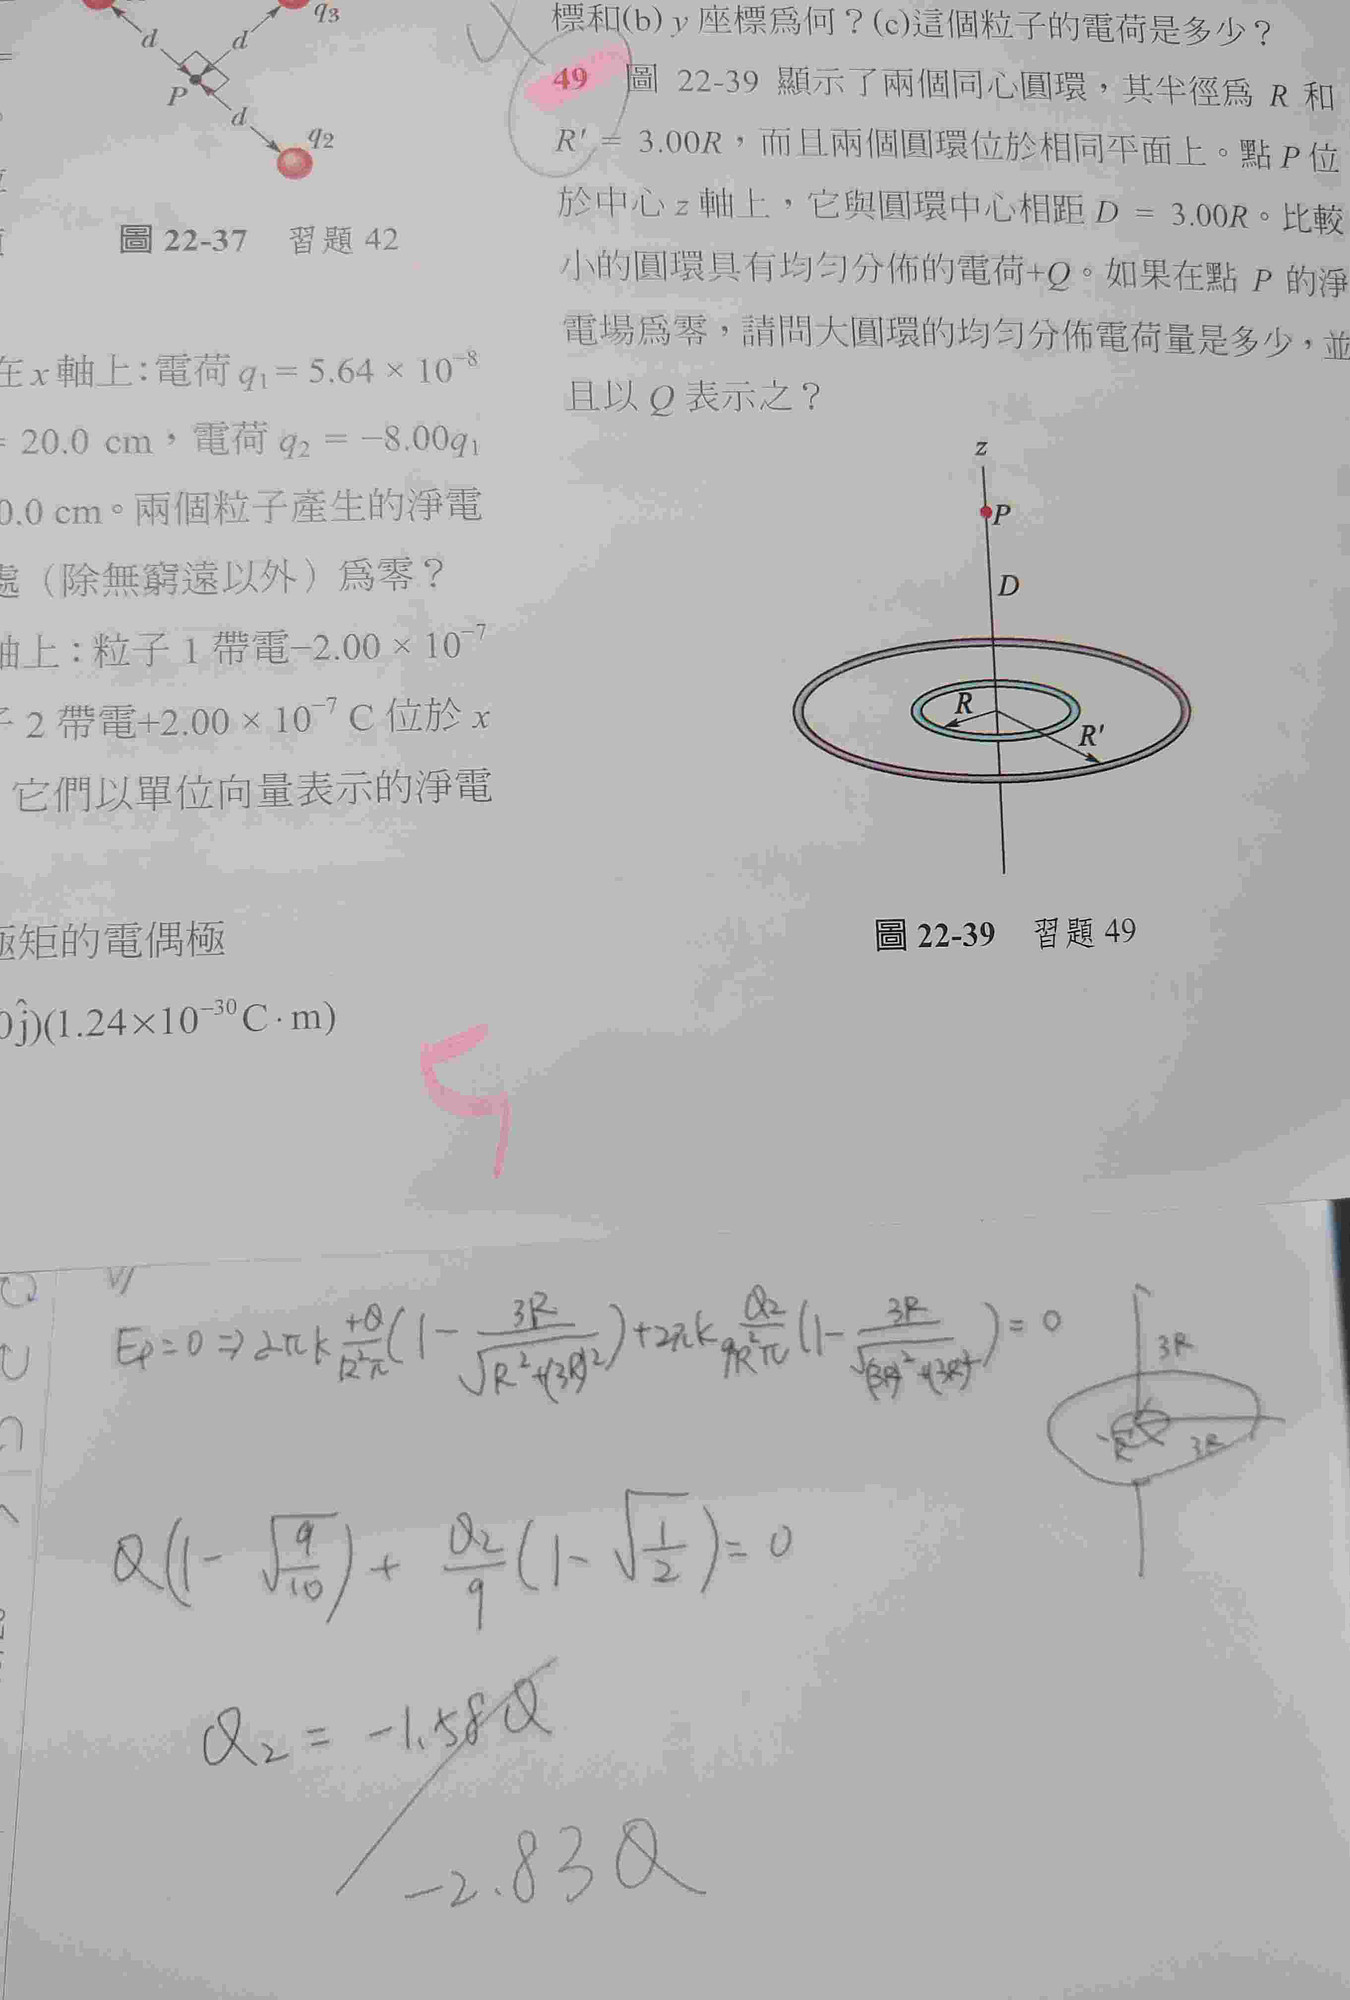 q3
d
d
P
d
q2
圖 22-37 習題 42
在 x 軸上：電荷 q₁ = 5.64 × 10⁻⁸
= 20.0 cm，電荷 q₂ = −8.00q₁
0.0 cm。兩個粒子產生的淨電
處（除無窮遠以外）爲零？
軸上：粒子 1 帶電−2.00 × 10⁻⁷
子 2 帶電+2.00 × 10⁻⁷ C 位於 x
它們以單位向量表示的淨電
極矩的電偶極
0ĵ)(1.24×10⁻³⁰C·m)
標和(b) y 座標爲何？(c)這個粒子的電荷是多少？
49 圖 22-39 顯示了兩個同心圓環，其半徑爲 R 和
R' = 3.00R，而且兩個圓環位於相同平面上。點 P 位
於中心 z 軸上，它與圓環中心相距 D = 3.00R。比較
小的圓環具有均勻分佈的電荷+Q。如果在點 P 的淨
電場爲零，請問大圓環的均勻分佈電荷量是多少，並
且以 Q 表示之？
z
P
D
R
R'
圖 22-39 習題 49
Ep=0 ⇒ 2πk +Q/R²π (1 − 3R/√(R²+(3R)²)) + 2πk Q₂/9R²π (1 − 3R/√((3R)²+(3R)²)) = 0
3R
R
3R
Q(1 − √(9/10)) + Q₂/9 (1 − √(1/2)) = 0
Q₂ = −1.58Q
−2.83Q